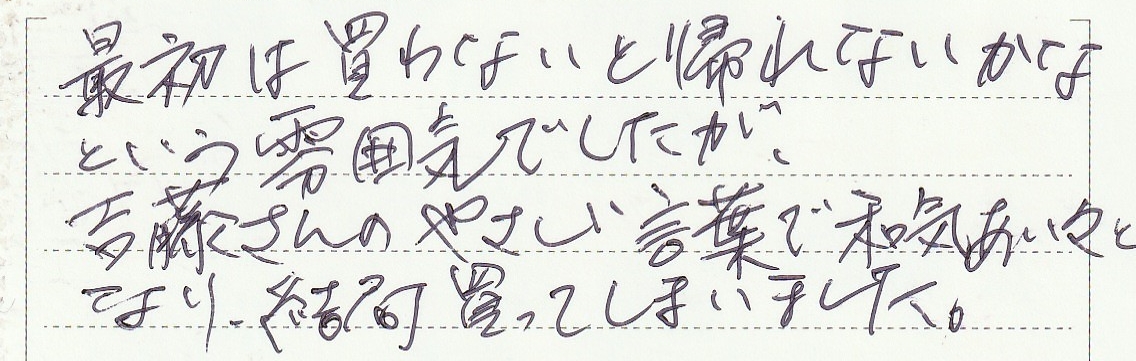 最初は買わないと帰れないかな
という雰囲気でしたが、
吉藤さんのやさしい言葉で和気あい々と
なり、結局買ってしまいました。